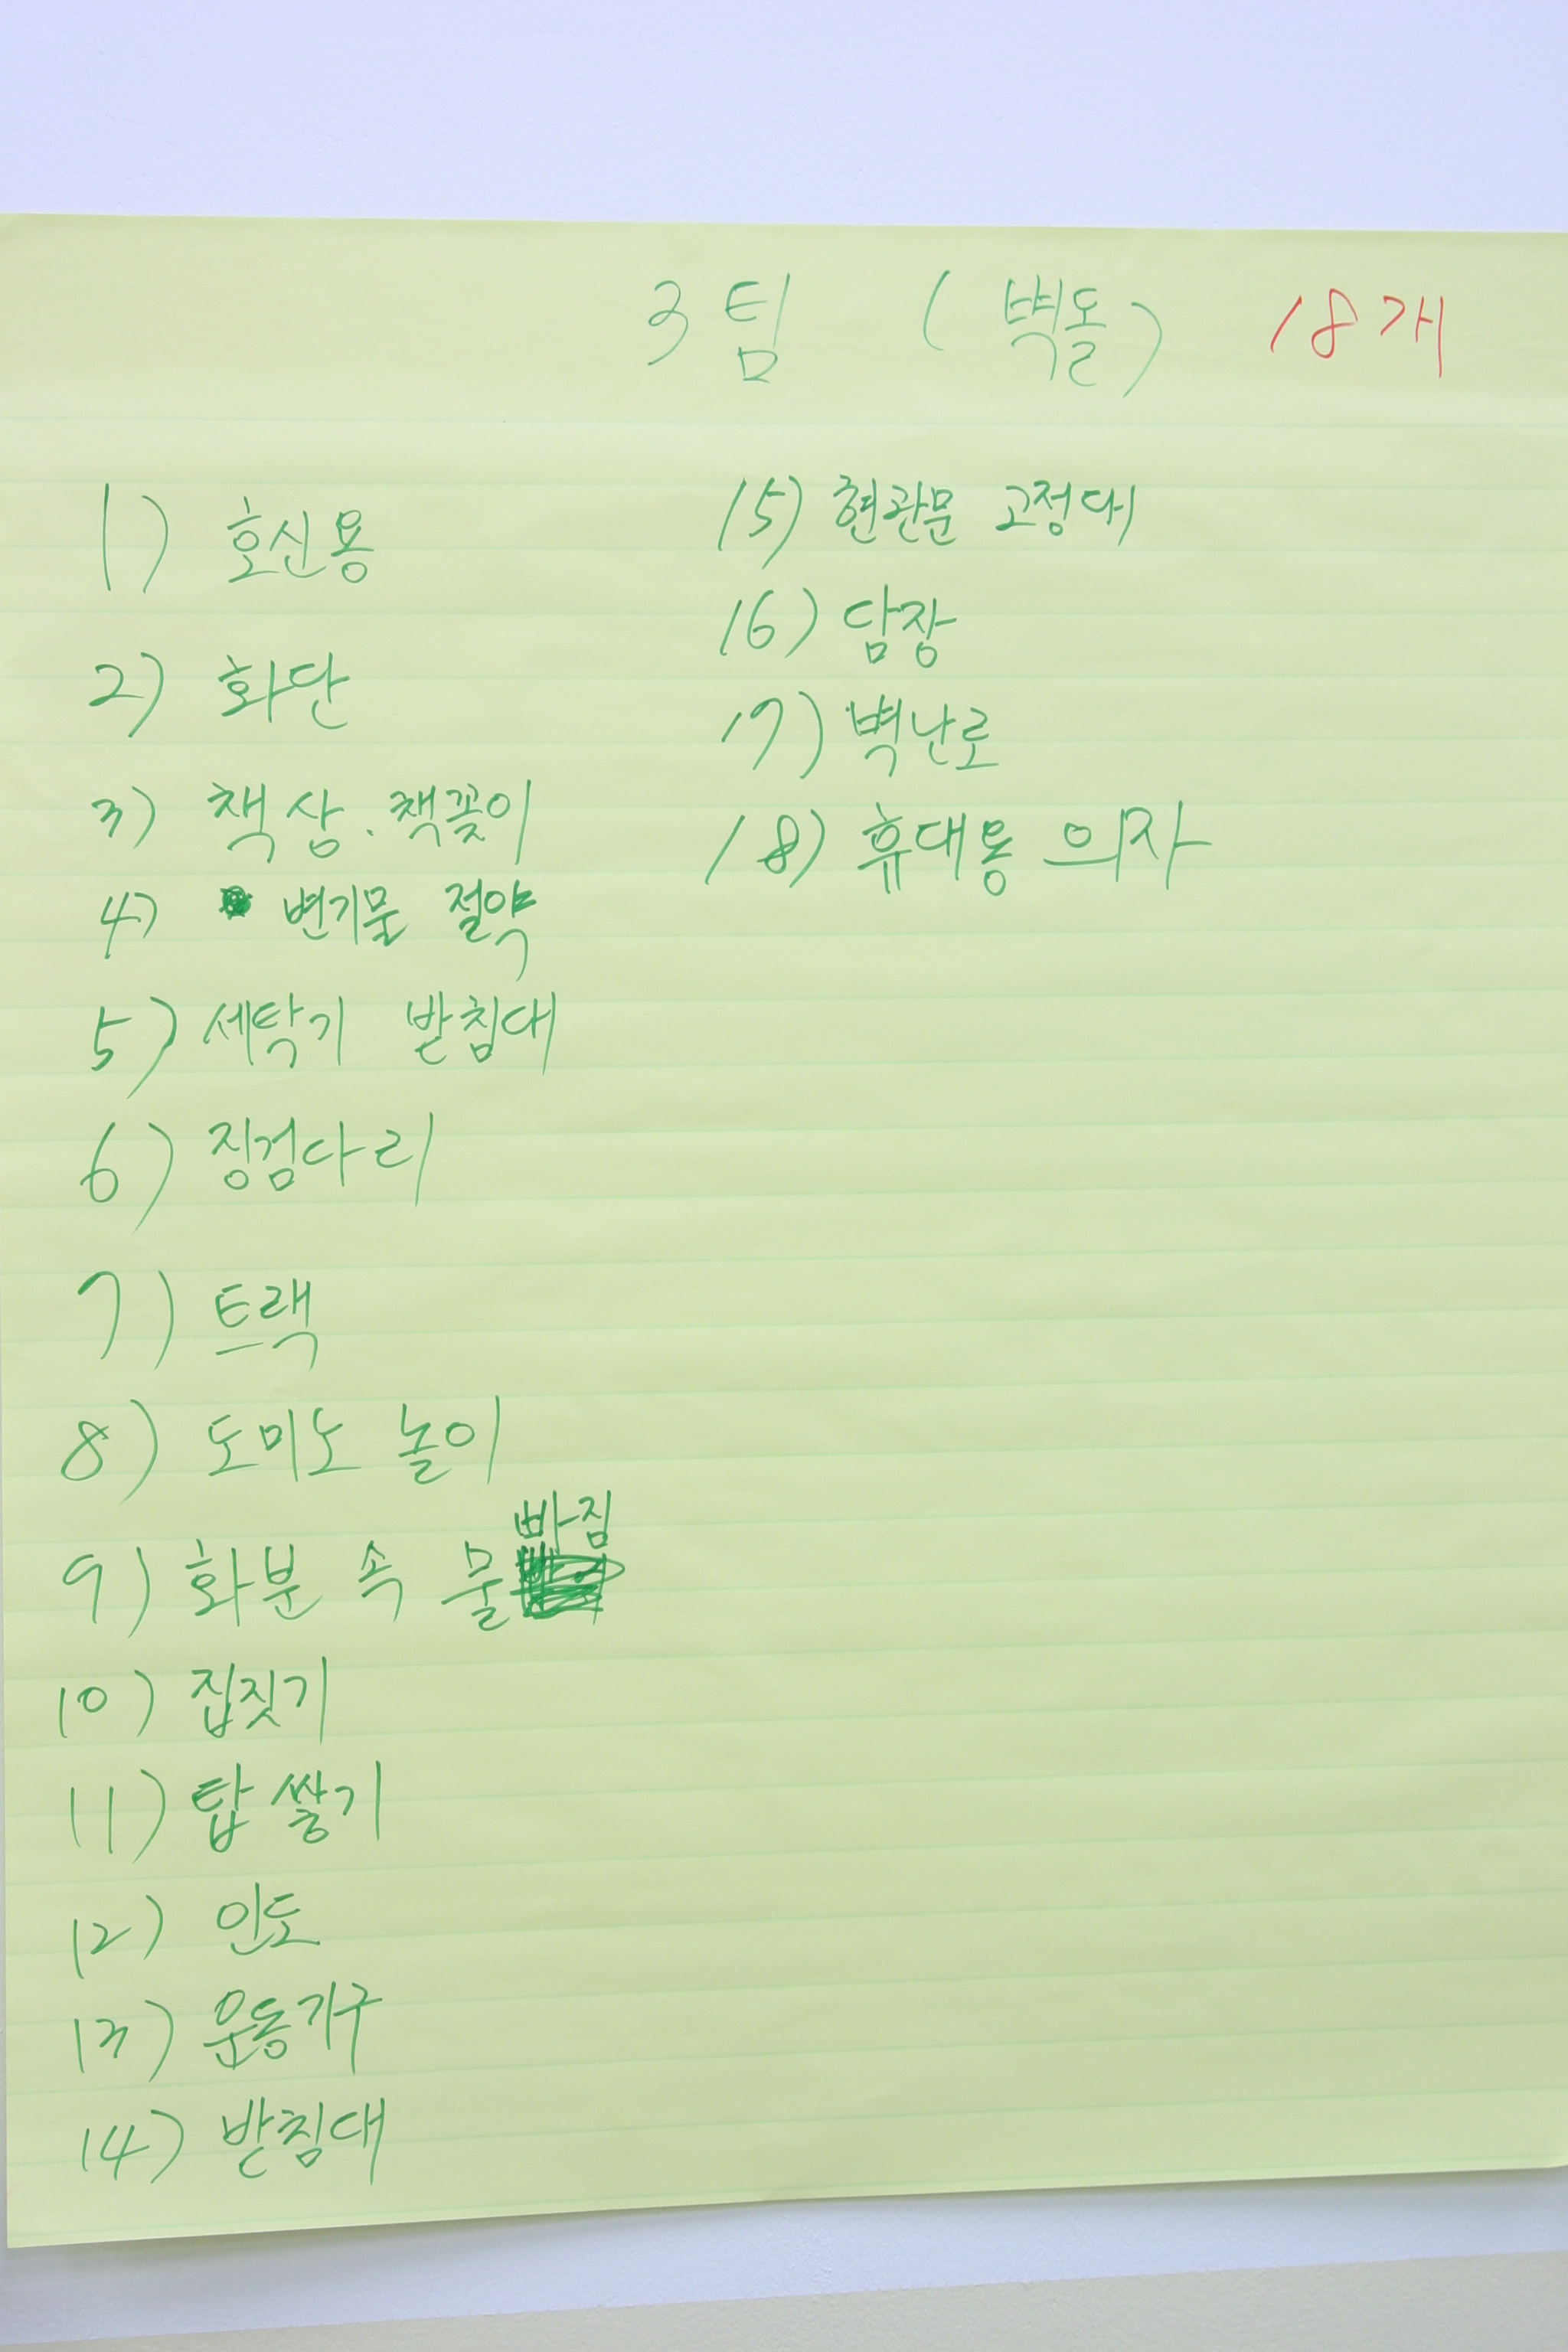 3팀 (벽돌) 18개
1) 호신용
2) 화단
3) 책상. 책꽂이
4) 변기물 절약
5) 세탁기 받침대
6) 징검다리
7) 트랙
8) 도미노 놀이
9) 화분 속 물빠짐
10) 집짓기
11) 탑 쌓기
12) 인도
13) 운동기구
14) 받침대
15) 현관문 고정대
16) 담장
17) 벽난로
18) 휴대용 의자